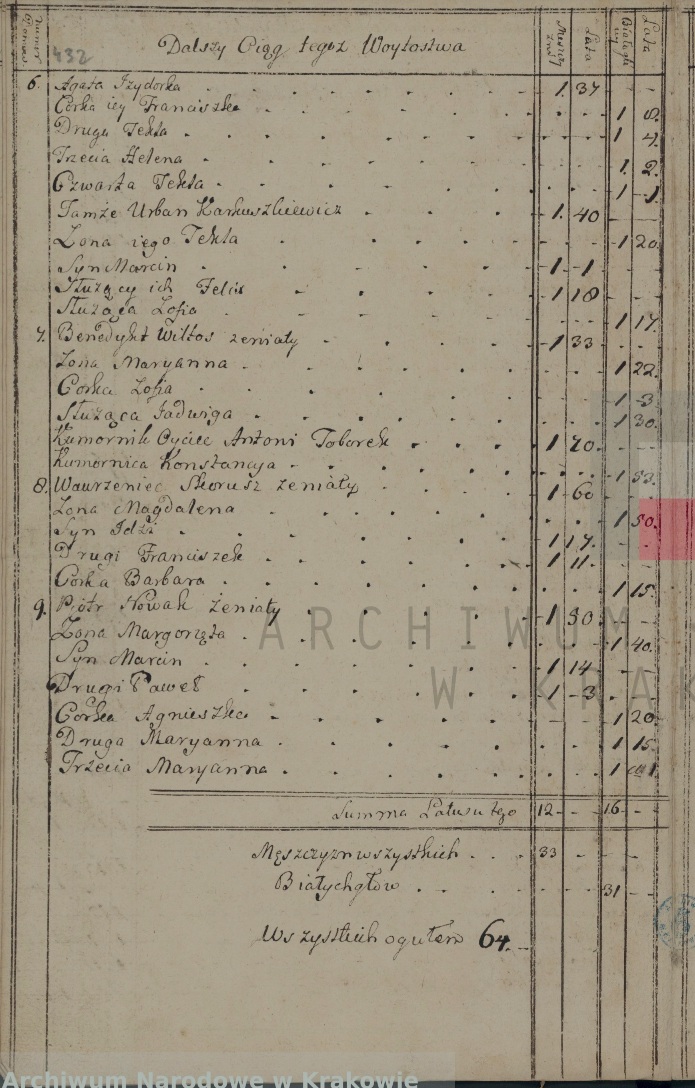 432
Dalszy Ciąg tegoż Woytostwa
Lata
Lata
6. Agata Izydorka 1 37
Corka iey Franciszka 1 8.
Druga Tekla 1 4.
Trzecia Helena 1. 2.
Czwarta Tekla 1 1
Tamże Urban 1. 40
Zona iego Tekla 1 20.
Syn Marcin 1 1
Służący ich Felix 1 18
Służąca Zofia 1 17.
7. Benedykt Wiltos zeniaty 1 33
Zona Maryanna 1 22.
Corka Zofia 1 3
Służąca Jadwiga 1 30.
Kumornik Oyciec Antoni Toborek 1 70
Kumornica Konstancya 1 53.
8. Wawrzeniec Skorusz zeniaty 1 60
Zona Magdalena 1 50.
Syn Idzi 1 17.
Drugi Franciszek 1 11.
Corka Barbara 1 15.
9. Piotr Nowak zeniaty 1 50
Zona Margorzęta 1 40.
Syn Marcin 1 14
Drugi Paweł 1 3
Corka Agnieszka 1 20
Druga Maryanna 1 15
Trzecia Maryanna 1
Summa Latusu tego 12 16
Męszczyzn wszystkich 33
Białychgłow 31
Wszystkich ogułem 64.
ARCHIWUM
W KRAK
Archiwum Narodowe w Krakowie